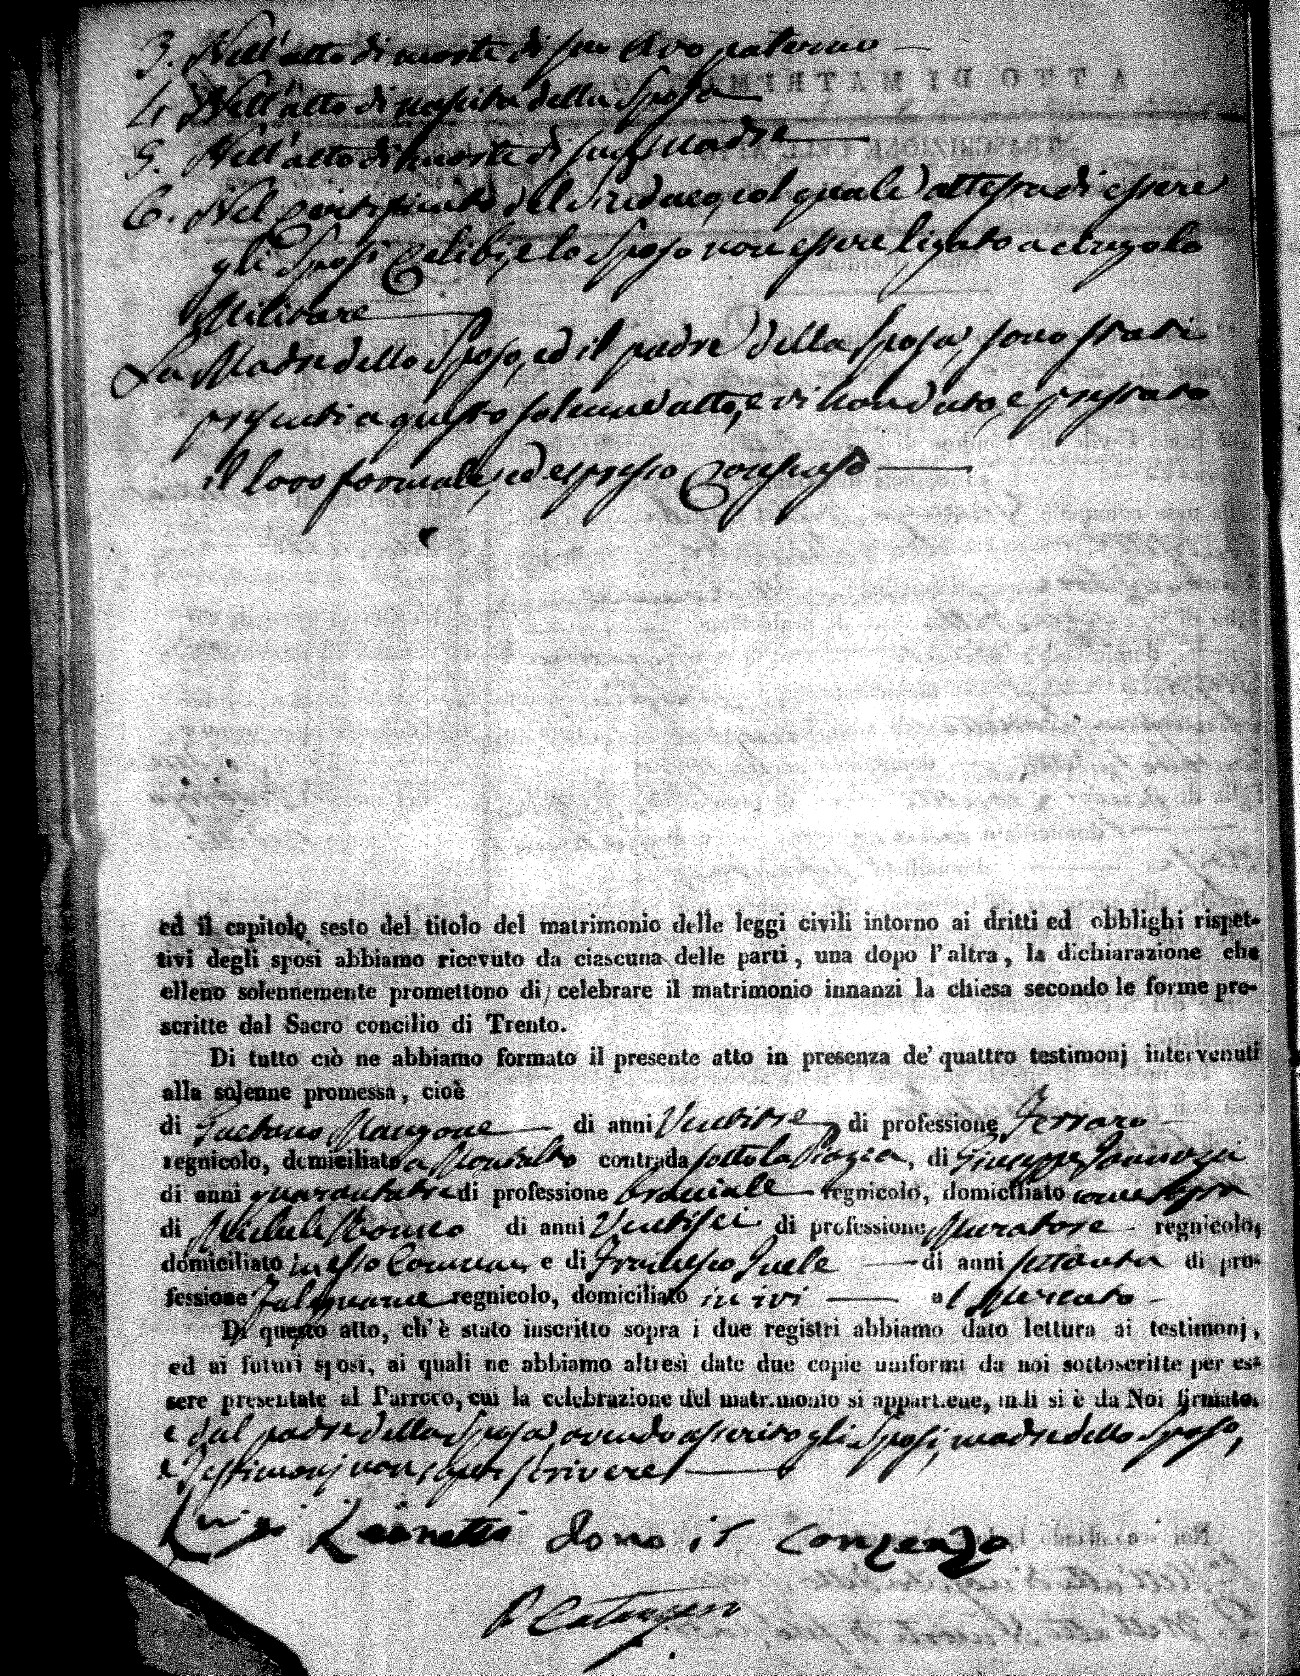 3. Nell'atto di morte di suo Avo paterno
4. Nell'atto di nascita della Sposa
5. Nell'atto di morte di sua madre
6. Nel Certificato del Sindaco, col quale attesta di essere
gli Sposi Celibi, e lo Sposo non essere ligato a cingolo
Militare
La Madre dello Sposo, ed il padre della Sposa, sono stati
presenti a questo solenne atto, e vi han dato, e prestato
il loro formale, ed espresso Consenso
ed il capitolo sesto del titolo del matrimonio delle leggi civili intorno ai dritti ed obblighi rispet-
tivi degli sposi abbiamo ricevuto da ciascuna delle parti, una dopo l'altra, la dichiarazione che
elleno solennemente promettono di celebrare il matrimonio innanzi la chiesa secondo le forme pre-
scritte dal Sacro concilio di Trento.
Di tutto ciò ne abbiamo formato il presente atto in presenza de' quattro testimonj intervenuti
alla solenne promessa, cioè
di Gaetano Mangone di anni Ventitre di professione Ferraro
regnicolo, domiciliato a Montalto contrada sotto la Piazza, di Giuseppe
di anni quarantatre di professione bracciale regnicolo, domiciliato come sopra
di Michele Romeo di anni Ventisei di professione Muratore regnicolo,
domiciliato in esso Comune e di Francesco Iuele di anni settanta di pro-
fessione Falegname regnicolo, domiciliato in ivi al Mercato
Di questo atto, ch'è stato inscritto sopra i due registri abbiamo dato lettura ai testimonj,
ed ai futuri sposi, ai quali ne abbiamo altresì date due copie uniformi da noi sottoscritte per es-
sere presentate al Parroco, cui la celebrazione del matrimonio si appartiene, indi si è da Noi firmato.
e dal padre della Sposa avendo asserito gli Sposi, madre dello Sposo,
e Testimonj non saper scrivere
Luigi dono il Conzenzo